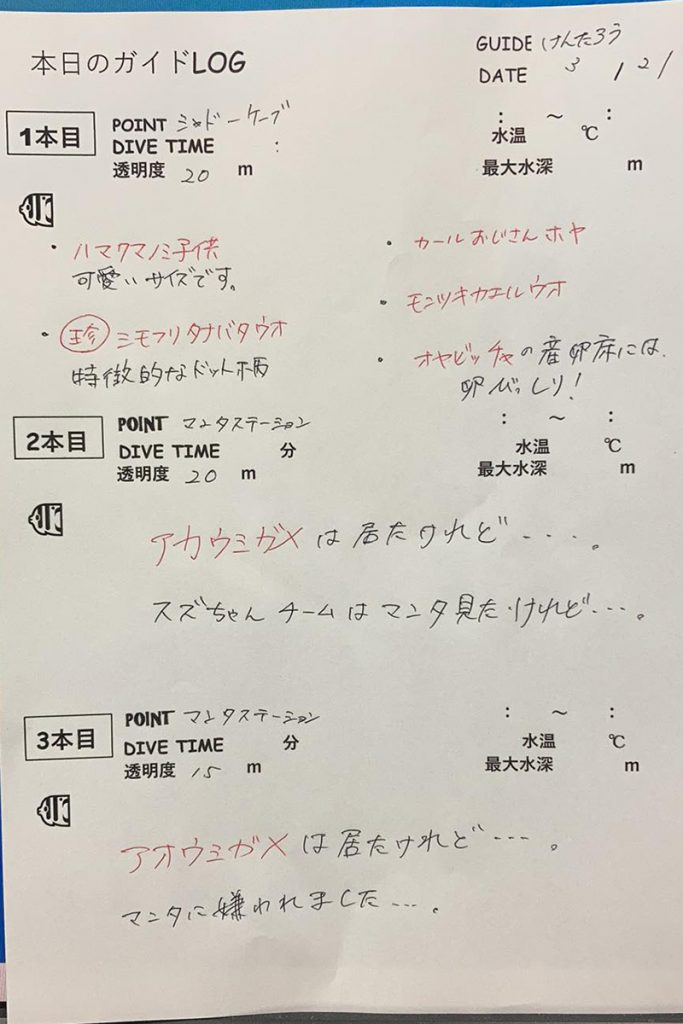 本日のガイドLOG
GUIDE けんたろう
DATE 3/21
1本目
POINT シャドーケーブ
DIVE TIME :
透明度 20 m
: ～ :
水温 ℃
最大水深 m
・ハマクマノミ子供
可愛いサイズです。
・珍 シモフリタナバタウオ
特徴的なドット柄
・カールおじさんホヤ
・モンツキカエルウオ
・オヤビッチャの産卵床には、
卵びっしり!
2本目
POINT マンタステーション
DIVE TIME 分
透明度 20 m
: ～ :
水温 ℃
最大水深 m
アカウミガメは居たけれど・・・・。
スズちゃんチームはマンタ見たけれど・・・。
3本目
POINT マンタステーション
DIVE TIME 分
透明度 15 m
: ～ :
水温 ℃
最大水深 m
アオウミガメは居たけれど・・・。
マンタに嫌われました・・・。